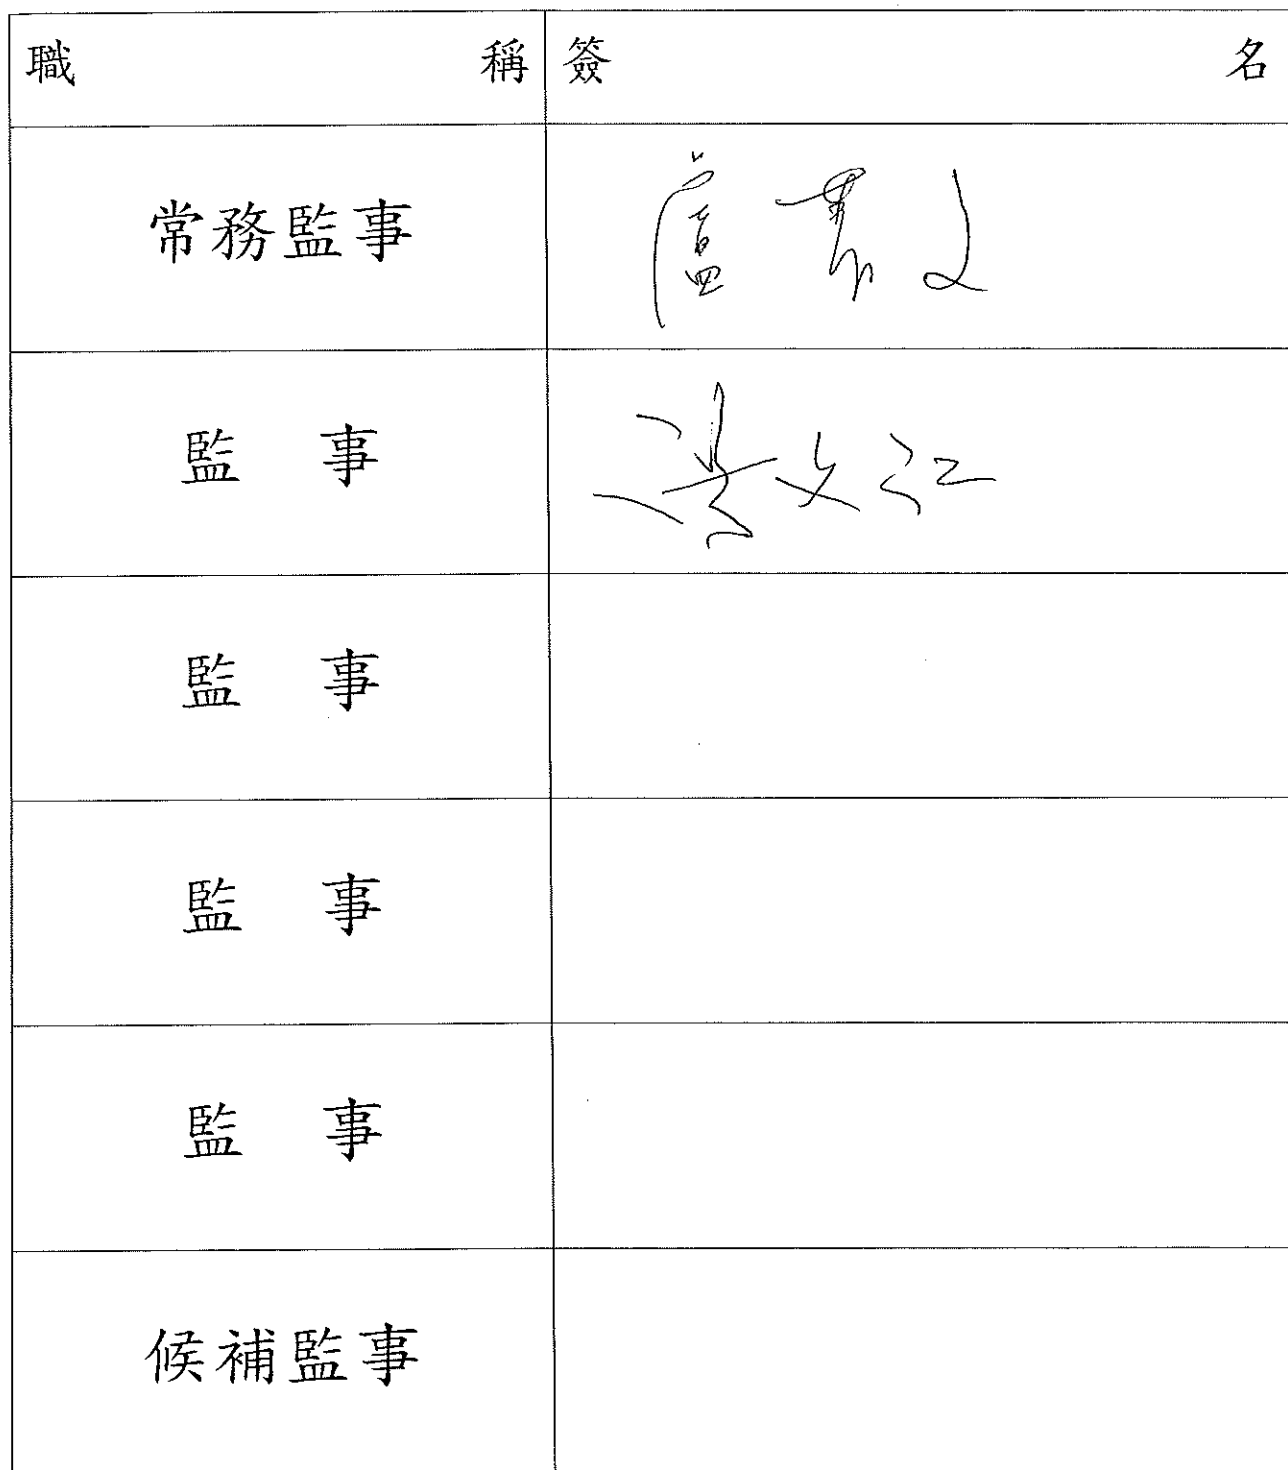 職稱 簽名
常務監事
監事 文江
監事
監事
監事
候補監事